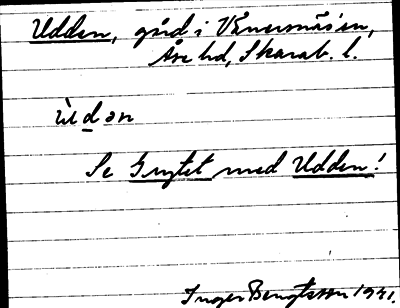 Udden, gård i Vänersnäs sn,
Åse hd, Skarab. l.
ùdən
Se Grytet med Udden!
Inger Bengtsson 1941.